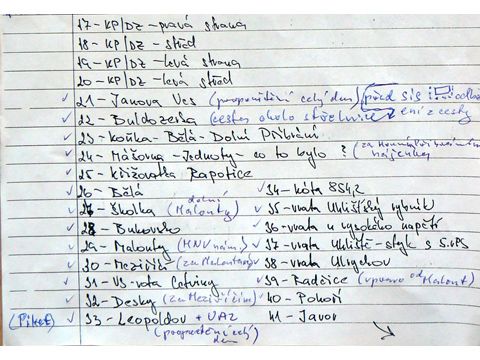 17 - KP/DZ - pravá strana
18 - KP/DZ - střed
19 - KP/DZ - levá strana
20 - KP/DZ - levá střed
✓ 21 - Janova Ves (propouštění celý den) před sis
✓ 22 - Buldozerka (cesta okolo střelnice) ení z cesty
✓ 23 - Kouka - Bělá - Dolní Přibrání
✓ 24 - Mášovna - Jednoty - co to bylo ? (za
✓ 25 - Křižovatka Rapotice
✓ 26 - Bělá
✓ 27 - Školka (dolní Malonty)
✓ 28 - Bukovsko
✓ 29 - Malonty (MNV námi)
✓ 30 - Meziříčí (za Malontami)
✓ 31 - VS - vrata Cetviny
✓ 32 - Desky (za Meziříčím)
(Piket) ✓ 33 - Leopoldov + UAZ
(propouštění celý den)
✓ 34 - kóta 854,2
✓ 35 - vrata Uhlišťský rybník
✓ 36 - vrata u vysokého napětí
✓ 37 - vrata Uhliště - styk s SVPS
✓ 38 - vrata
✓ 39 - Radčice (vpravo od Malont)
✓ 40 - Pohoří
41 - Javor